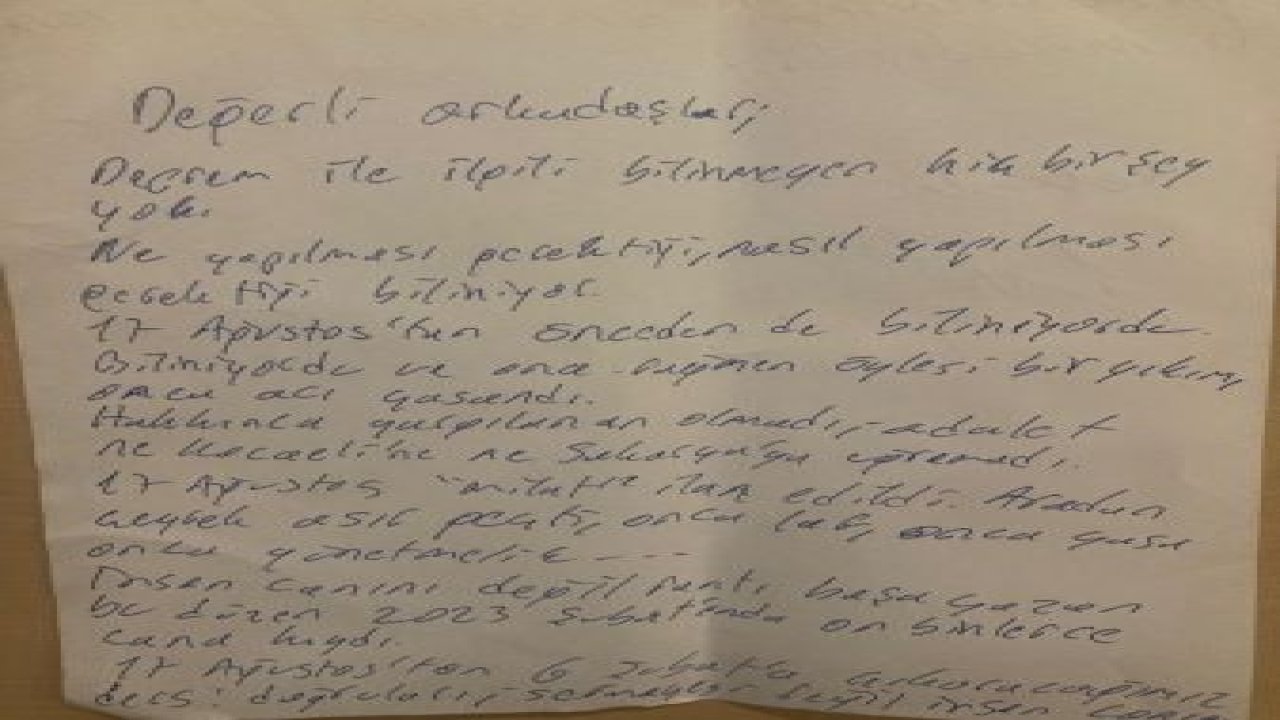 Değerli arkadaşlar,
Deprem ile ilgili bilinmeyen hiç bir şey
yok.
Ne yapılması gerektiği, nasıl yapılması
gerektiği biliniyor.
17 Ağustos'tan önceden de biliniyordu.
Biliniyordu ve ona rağmen öylesi bir yıkım,
onca acı yaşandı.
Hakkınca yargılanan olmadı, adalet
ne Kocaeli'ne ne Sakarya'ya uğramadı.
17 Ağustos "milat" ilan edildi. Aradan
çeyrek asır geçti, onca laf, onca yasa
onca yönetmelik ----
İnsan canını değil rantı başa yazan
bu düzen 2023 Şubat'ında on binlerce
cana kıydı.
17 Ağustos'tan 6 Şubat'a çıkaracağımız
ders: doğruları, değil insan